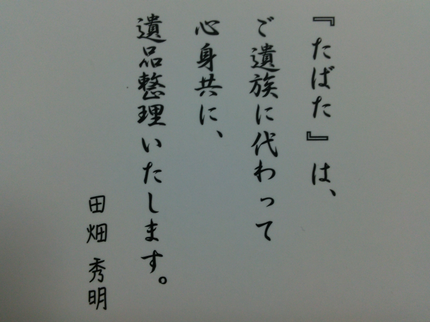 『たばた』は、
ご遺族に代わって
心身共に、
遺品整理いたします。
田畑 秀明